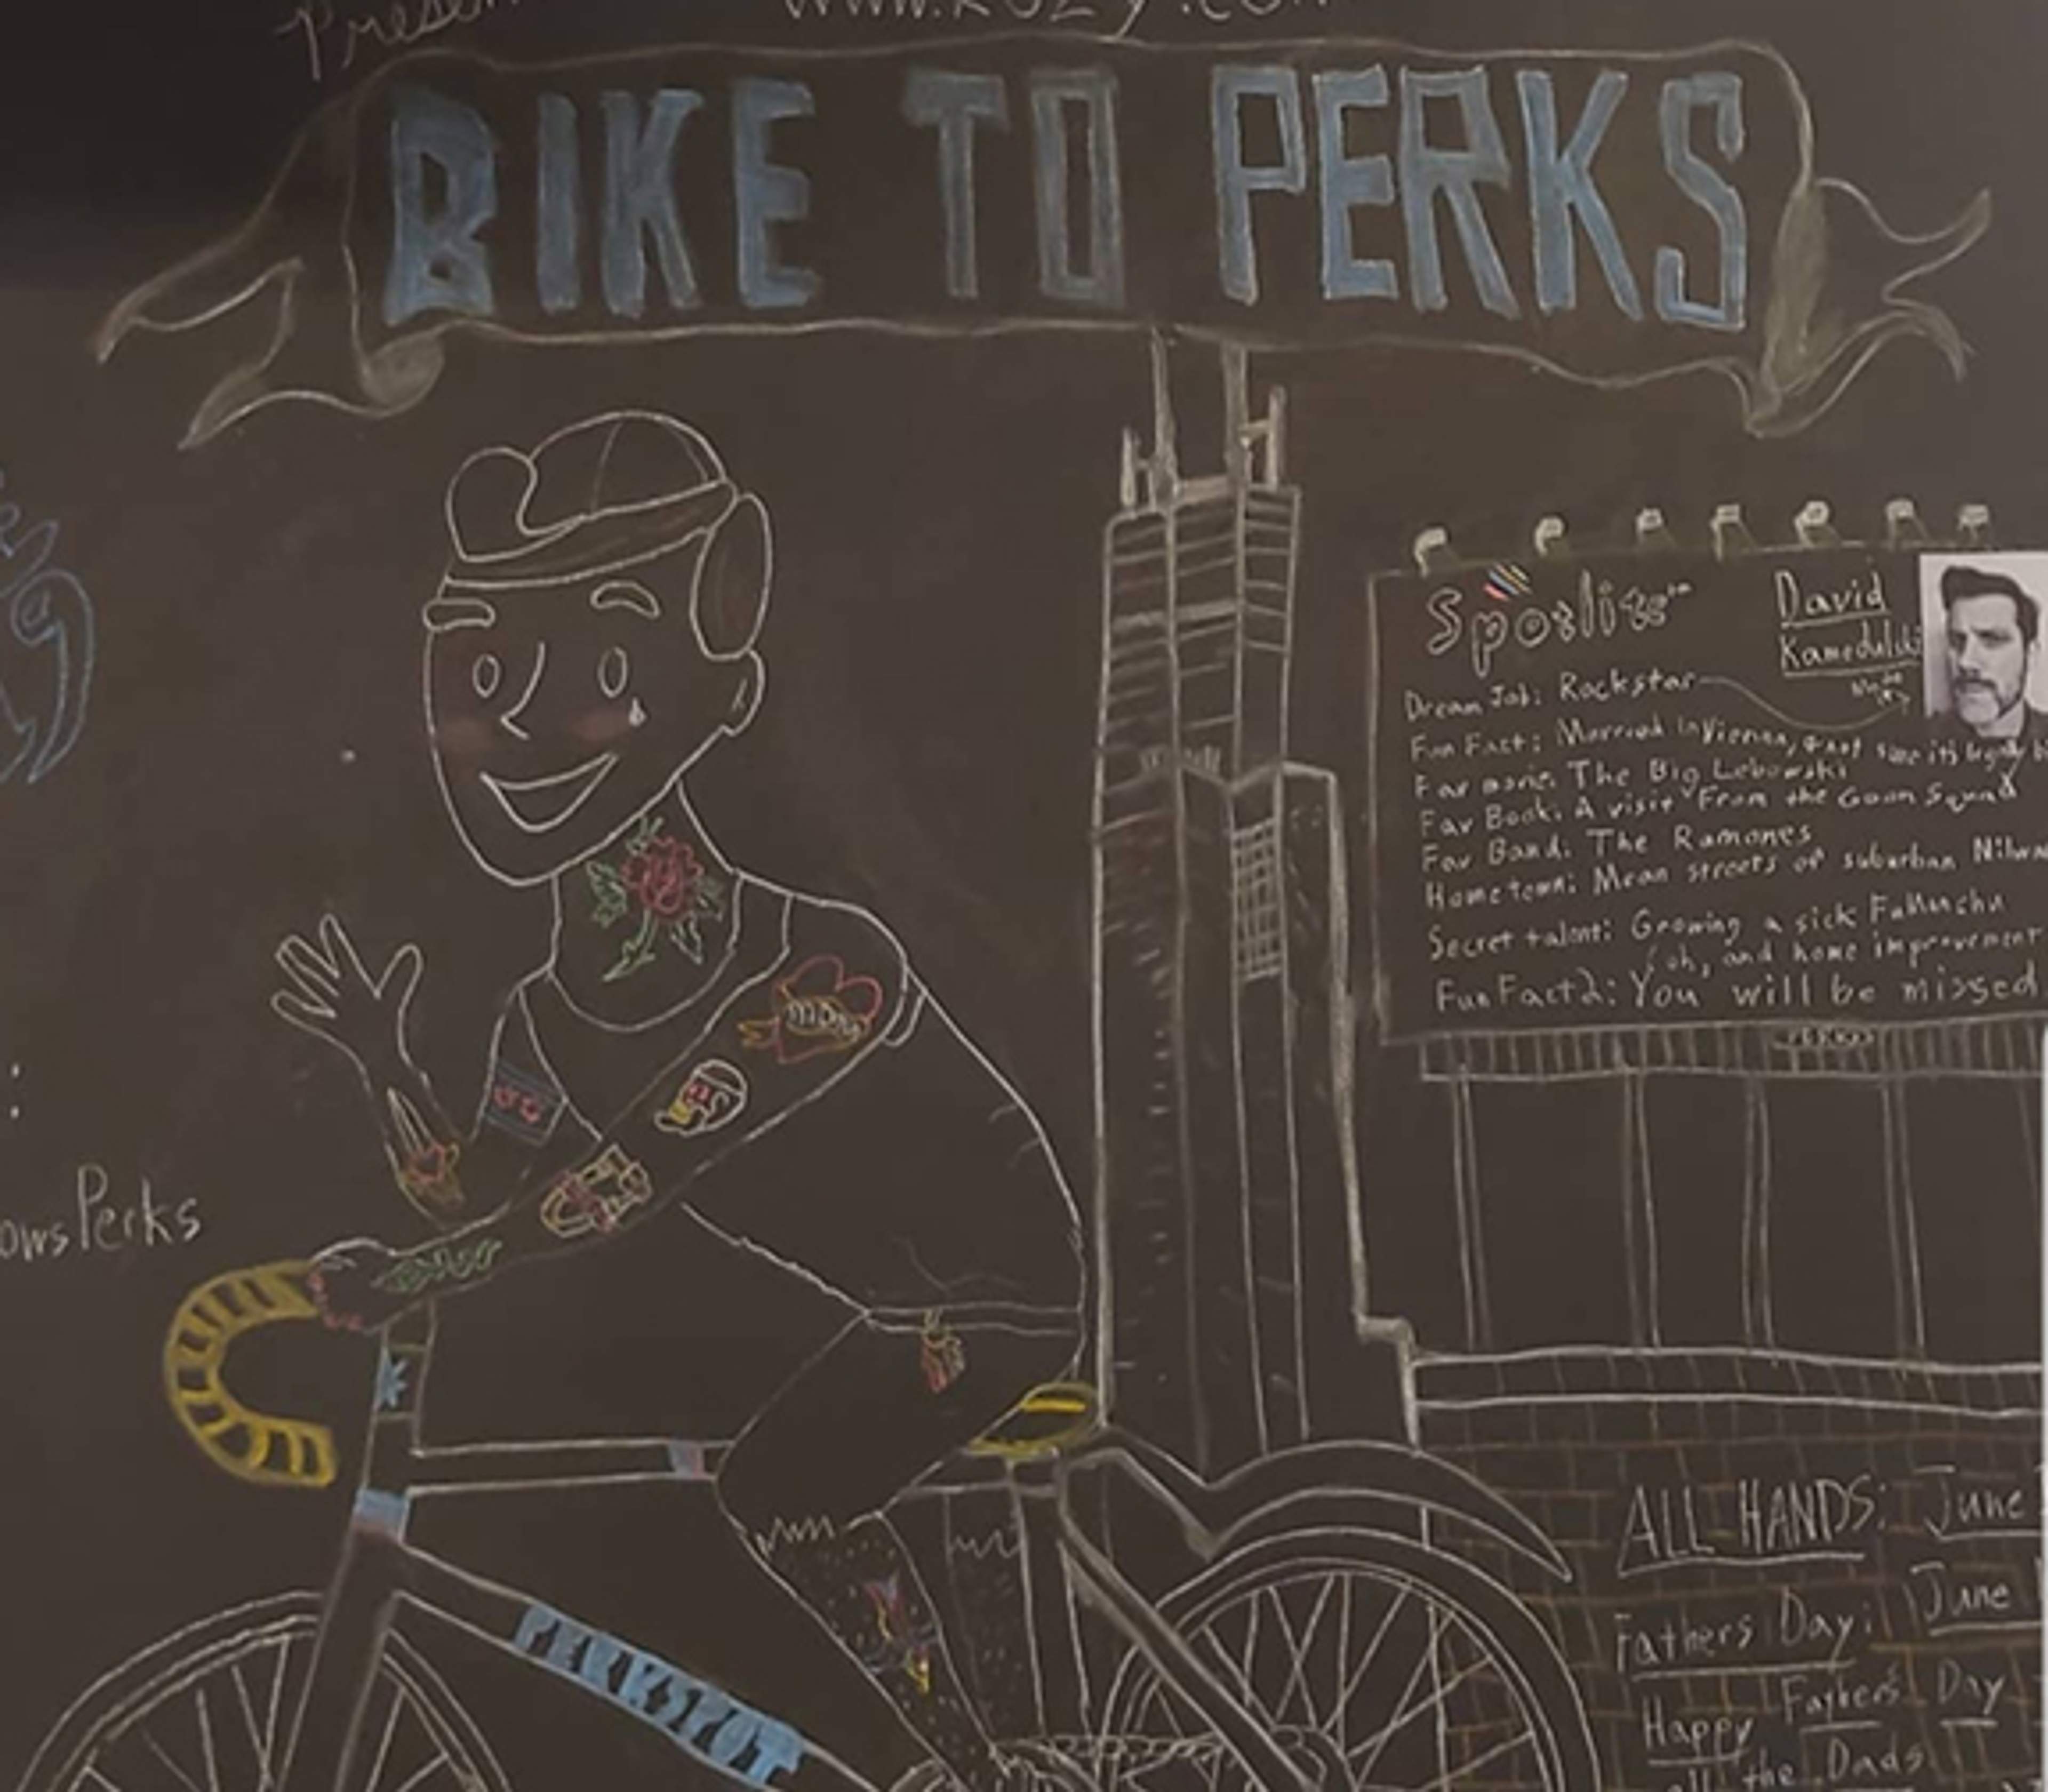 BIKE TO PERKS
Spotlite
David
Dream Job: Rockstar
Fun Fact: Married in Vienna,
Fav movie: The Big Lebowski
Fav Book: A visit From the Goon Squad
Fav Band: The Ramones
Hometown: Mean streets of suburban
Secret talent: Growing a sick
(oh, and home improvement
Fun Fact 2: You will be missed
MOM
Perks
PERKSPOT
ALL HANDS: June
Fathers Day: June
Happy Fathers Day
all the Dads